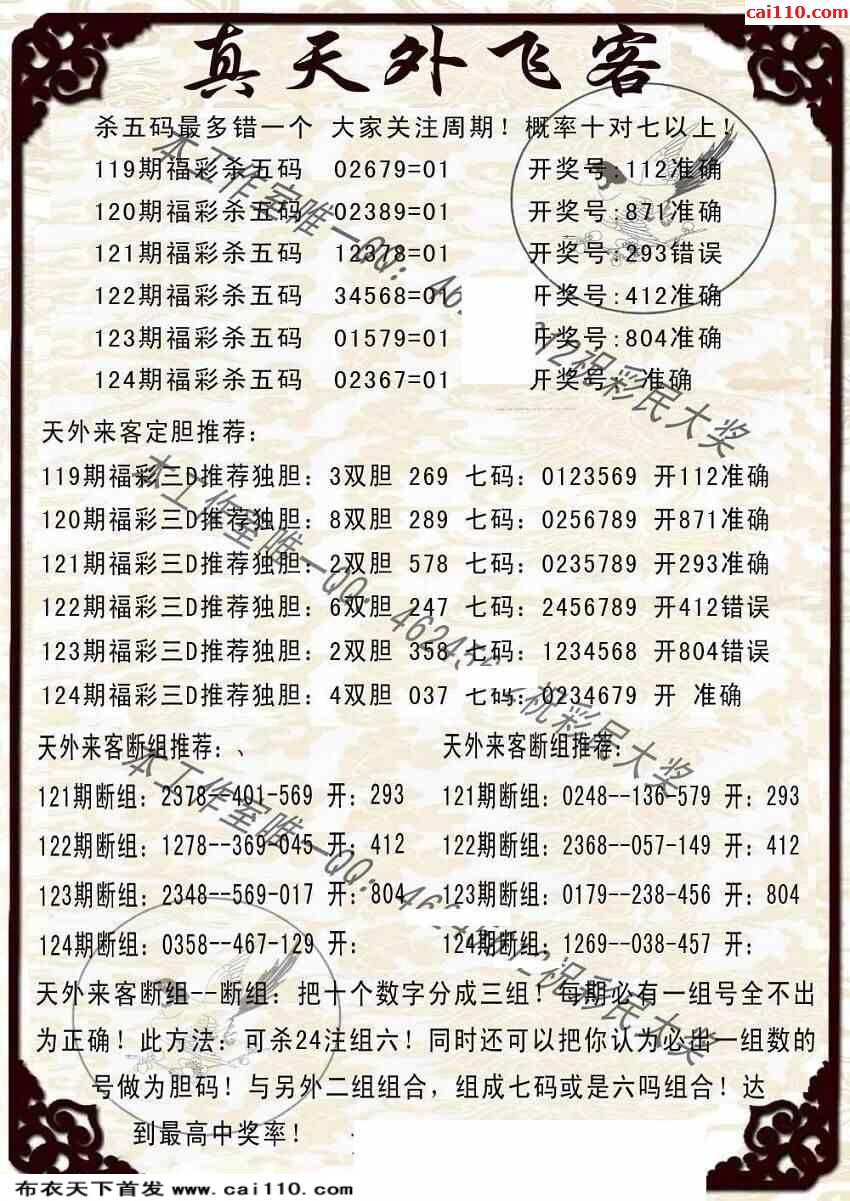 cai110.com
真天外飞客
杀五码最多错一个 大家关注周期！概率十对七以上！
119期福彩杀五码 02679=01 开奖号:112准确
120期福彩杀五码 02389=01 开奖号:871准确
121期福彩杀五码 12378=01 开奖号:293错误
122期福彩杀五码 34568=01 开奖号:412准确
123期福彩杀五码 01579=01 开奖号:804准确
124期福彩杀五码 02367=01 开奖号: 准确
天外来客定胆推荐：
119期福彩三D推荐独胆：3双胆 269 七码：0123569 开112准确
120期福彩三D推荐独胆：8双胆 289 七码：0256789 开871准确
121期福彩三D推荐独胆：2双胆 578 七码：0235789 开293准确
122期福彩三D推荐独胆：6双胆 247 七码：2456789 开412错误
123期福彩三D推荐独胆：2双胆 358 七码：1234568 开804错误
124期福彩三D推荐独胆：4双胆 037 七码：0234679 开 准确
天外来客断组推荐：、 天外来客断组推荐：
121期断组：2378--401-569 开：293 121期断组：0248--136-579 开：293
122期断组：1278--369-045 开：412 122期断组：2368--057-149 开：412
123期断组：2348--569-017 开：804 123期断组：0179--238-456 开：804
124期断组：0358--467-129 开： 124期断组：1269--038-457 开：
天外来客断组--断组：把十个数字分成三组！每期必有一组号全不出
为正确！此方法：可杀24注组六！同时还可以把你认为必出一组数的
号做为胆码！与另外二组组合，组成七码或是六吗组合！达
到最高中奖率！
本工作室唯一QQ：46 12祝彩民大奖
本工作室唯一QQ：46245 祝彩民大奖
本工作室唯一QQ：462 2祝彩民大奖
布衣天下首发 www.cai110.com